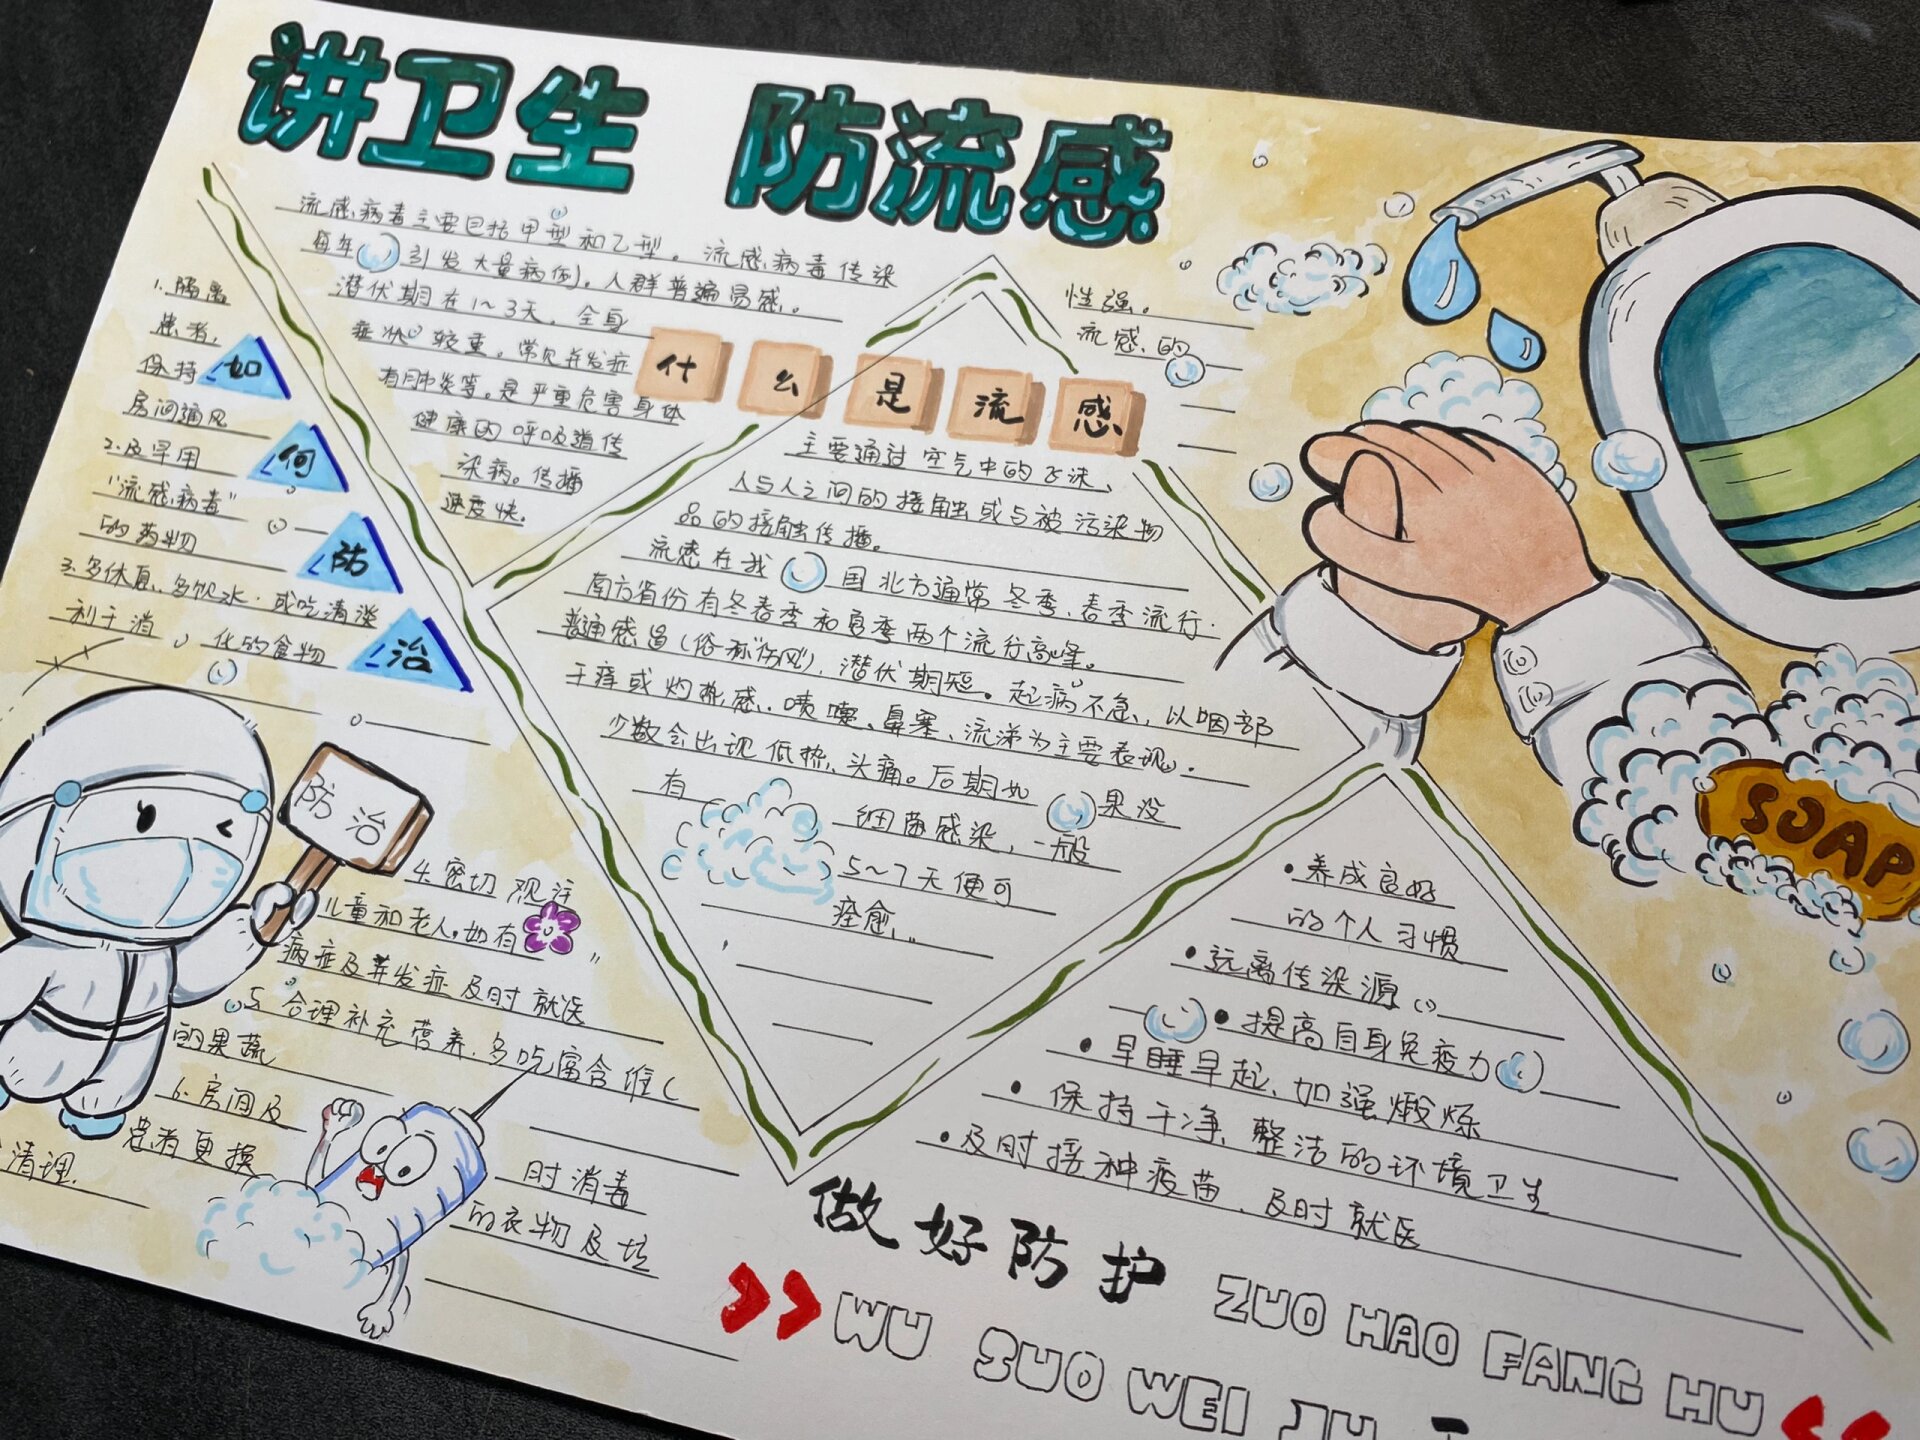 讲卫生 防流感
流感病毒主要包括甲型和乙型。流感病毒传染
性强。
每年引发大量病例,人群普遍易感。
流感的
潜伏期在1~3天,全身
症状较重。常见并发症
有肺炎等。是严重危害身体
健康的呼吸道传
染病。传播
速度快。
什么是流感
主要通过空气中的飞沫、
人与人之间的接触或与被污染物
品的接触传播。
流感在我国北方通常冬季、春季流行.
南方省份有冬春季和夏季两个流行高峰。
普通感冒(俗称"伤风"),潜伏期短。起病不急,以咽部
干痒或灼热感、喷嚏、鼻塞、流涕为主要表现.
少数会出现低热、头痛。后期如果没
有细菌感染,一般
5~7天便可
痊愈。
如何防治
1.隔离
患者,
保持
房间通风
2.及早用
"流感病毒"
的药物
3.多休息、多饮水.或吃清淡
利于消化的食物
防治
4.密切观注
儿童和老人,如有
病症及并发症及时就医
5.合理补充营养.多吃富含维C
的果蔬
6.房间及时消毒
患者更换的衣物及垃
清理.
SOAP
•养成良好
的个人习惯
•远离传染源
•提高自身免疫力
•早睡早起、加强煅炼
•保持干净、整洁的环境卫生
•及时接种疫苗、及时就医
做好防护
ZUO HAO FANG HU
WU SUO WEI JU